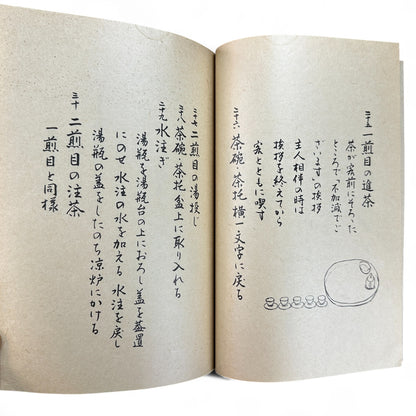 二十五 一煎目の進茶
茶が客前にそろった
ところで「不加減でご
ざいます」の挨拶
主人相伴の時は
挨拶を終えてから
客とともに喫す
二十六 茶碗・茶托横一文字に戻る
二十七 二煎目の湯
二十八 茶碗・茶托盆上に取り入れる
二十九 水注ぎ
湯瓶を湯瓶台の上におろし蓋を蓋置
にのせ水注の水を加える 水注を戻し
湯瓶の蓋をしたのち涼炉にかける
三十 二煎目の注茶
一煎目と同様